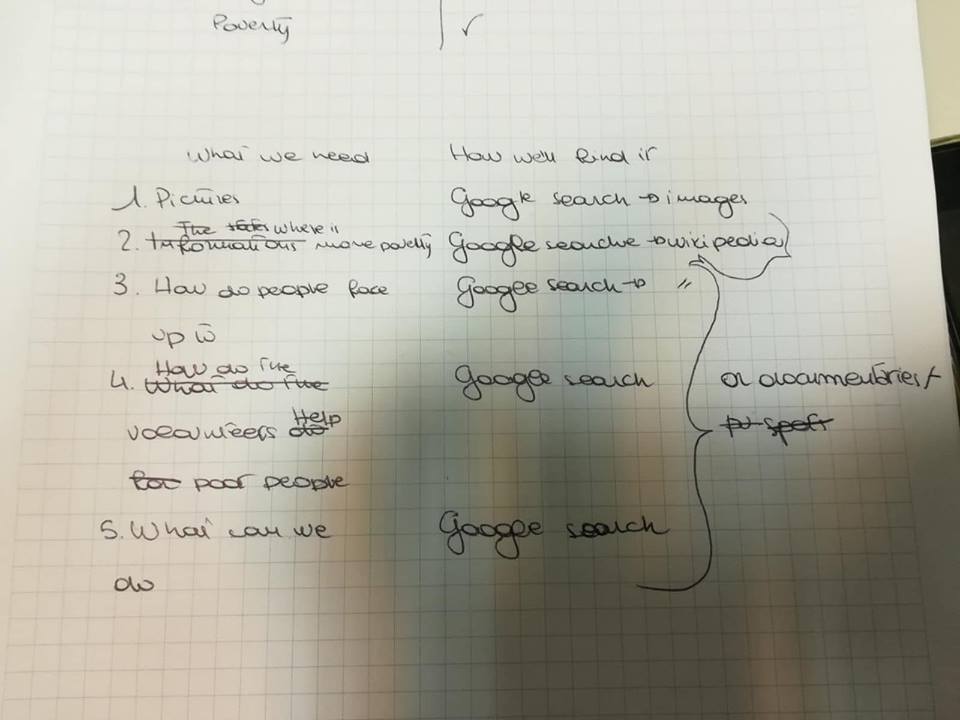 Poverty
What we need How we'll find it
1. Pictures Google search → images
The where is
2. Informations more poverty Google searche → wikipedia
3. How do people face Google search → "
up to
How do the
4. What do the Google search or documentries +
volounteers do Help
for poor people
5. What can we Google search
do